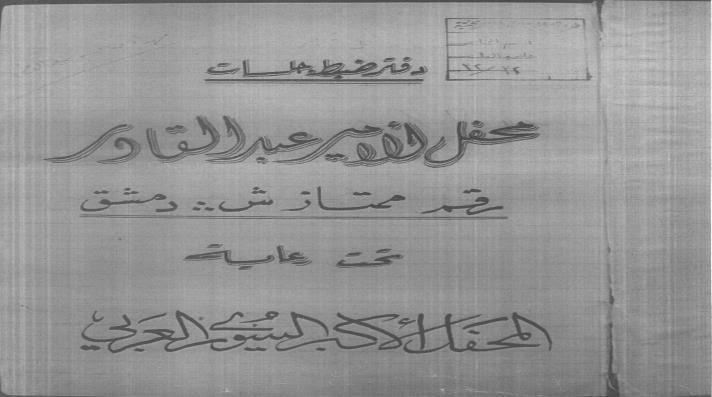 دفتر ضبط جلسات
محفل الأمير عبد القادر
رقم ممتاز ش .. دمشق
تحت رعاية
المحفل الأكبر السوري العربي